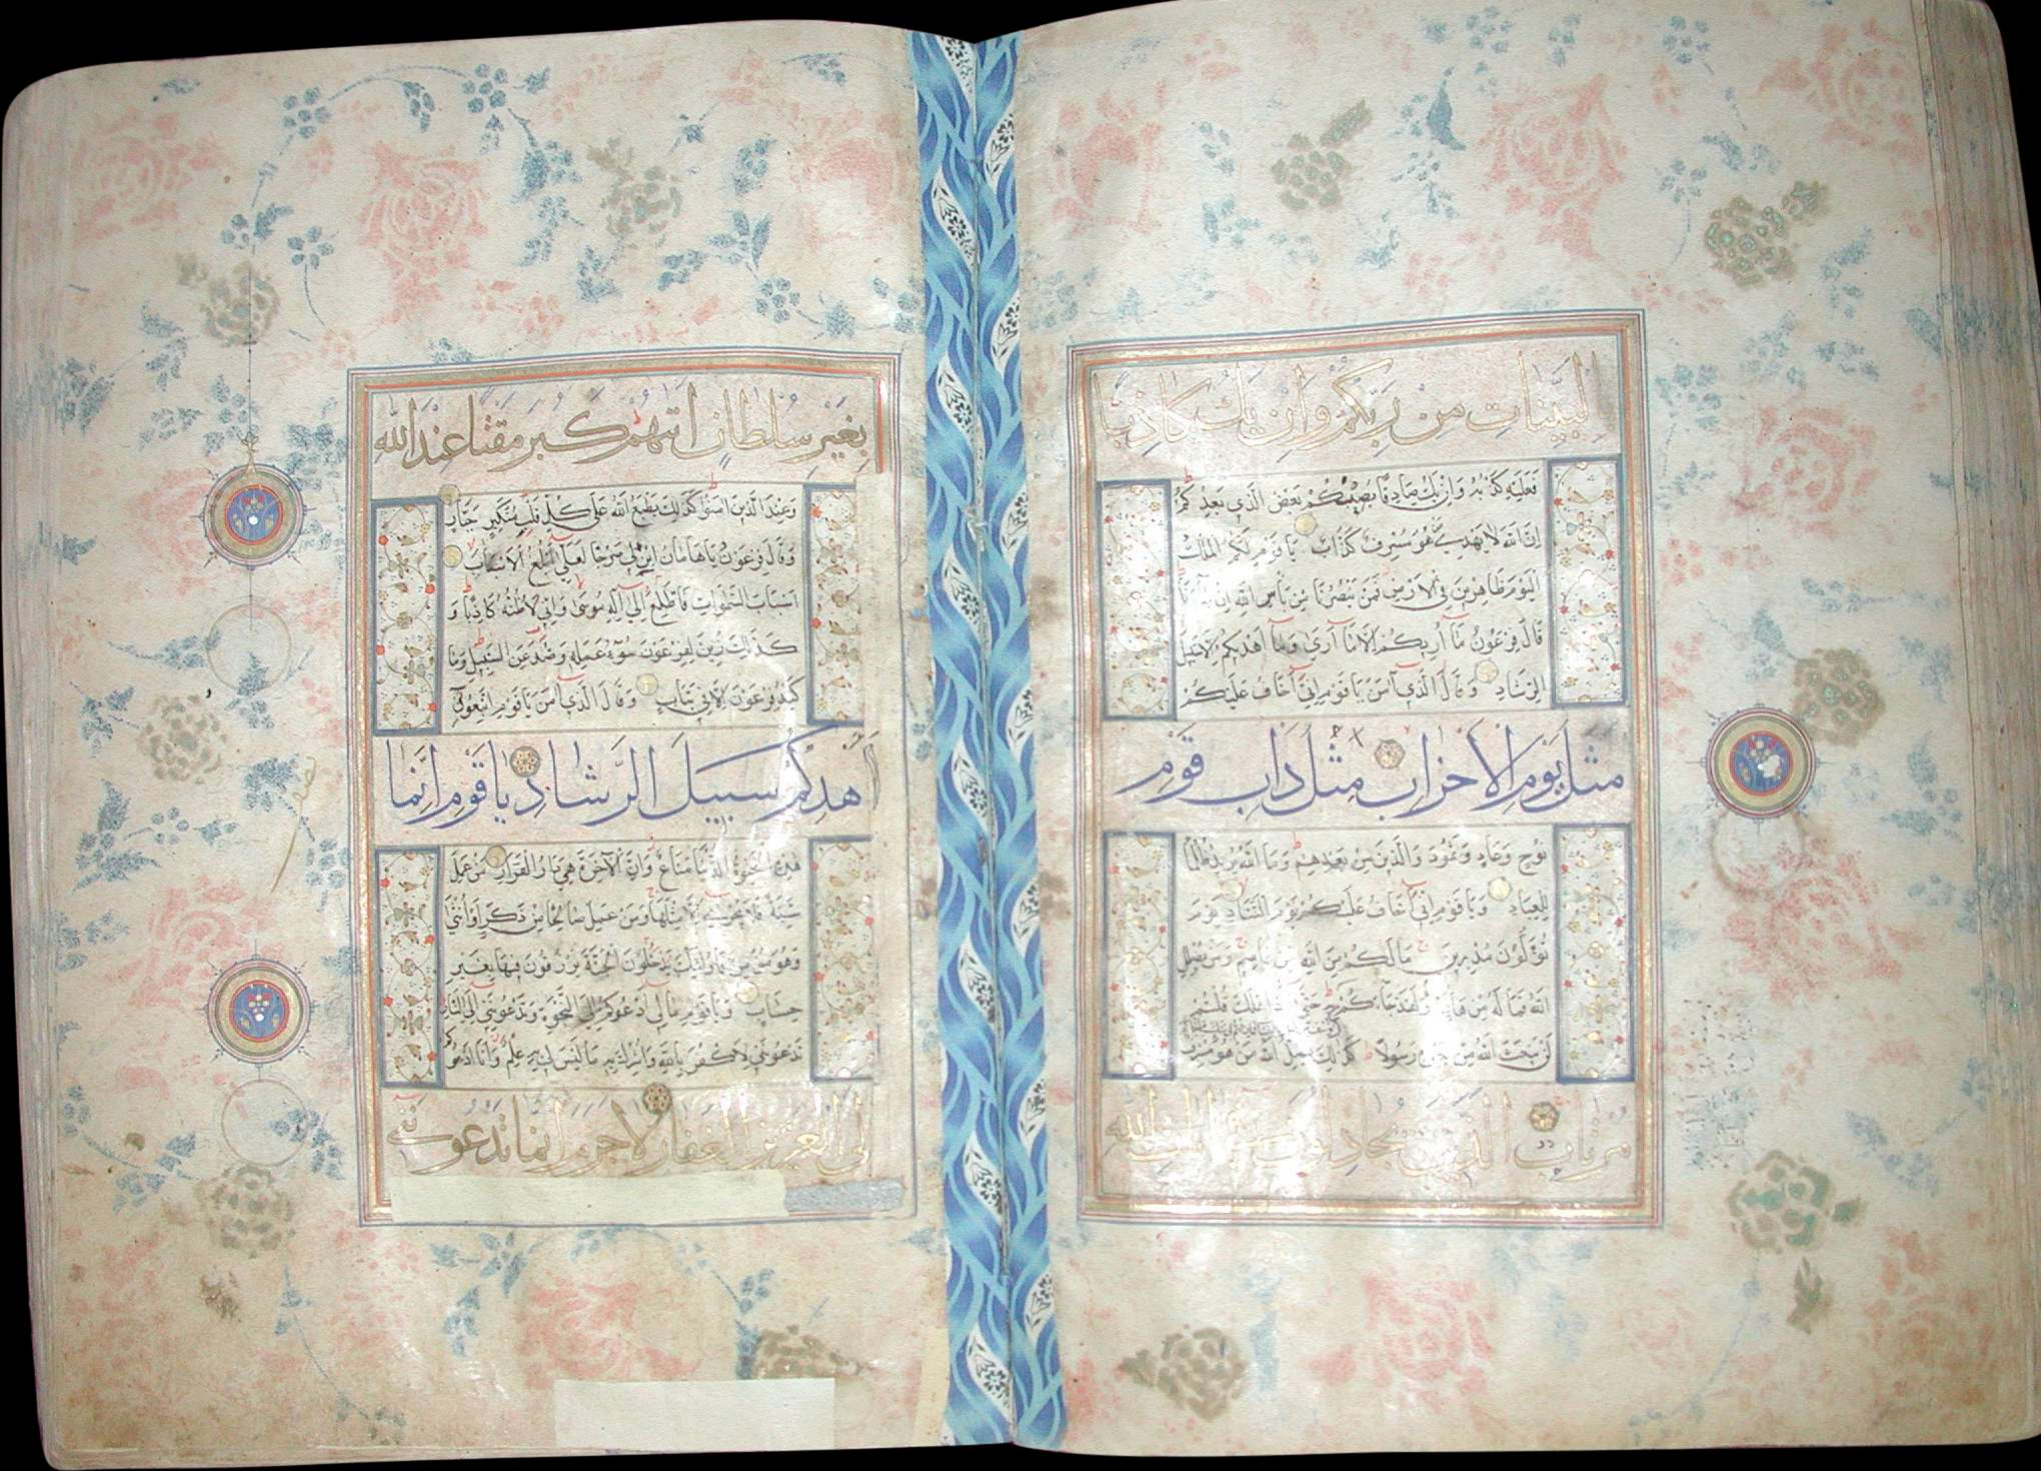 البينات من ربكم وان يك كاذبا
فعليه كذبه وان يك صادقا يصبكم بعض الذي يعدكم
ان الله لا يهدي من هو مسرف كذاب يا قوم لكم الملك
اليوم ظاهرين في الارض فمن ينصرنا من باس الله ان جاءنا
قال فرعون ما اريكم الا ما ارى وما اهديكم الا سبيل
الرشاد وقال الذي آمن يا قوم اني اخاف عليكم
مثل يوم الاحزاب مثل داب قوم
نوح وعاد وثمود والذين من بعدهم وما الله يريد ظلما
للعباد ويا قوم اني اخاف عليكم يوم التناد يوم
تولون مدبرين ما لكم من الله من عاصم ومن يضلل
الله فما له من هاد ولقد جاءكم حتى اذا هلك قلتم
لن يبعث الله من بعده رسولا كذلك يضل الله من هو مسرف
مرتاب الذين يجادلون في آيات الله
بغير سلطان اتيهم كبر مقتا عند الله
وعند الذين آمنوا كذلك يطبع الله على كل قلب متكبر جبار
وقال فرعون يا هامان ابن لي صرحا لعلي ابلغ الاسباب
اسباب السموات فاطلع الى اله موسى واني لاظنه كاذبا و
كذلك زين لفرعون سوء عمله وصد عن السبيل وما
كيد فرعون الا في تباب وقال الذي آمن يا قوم اتبعوني
اهدكم سبيل الرشاد يا قوم انما
هذه الحيوة الدنيا متاع وان الآخرة هي دار القرار من عمل
سيئة فلا يجزى الا مثلها ومن عمل صالحا من ذكر او انثى
وهو مؤمن فاولئك يدخلون الجنة يرزقون فيها بغير
حساب ويا قوم ما لي ادعوكم الى النجوة وتدعونني الى النار
تدعونني لاكفر بالله واشرك به ما ليس لي به علم وانا ادعوكم
الى العزيز الغفار لا جرم انما تدعونني